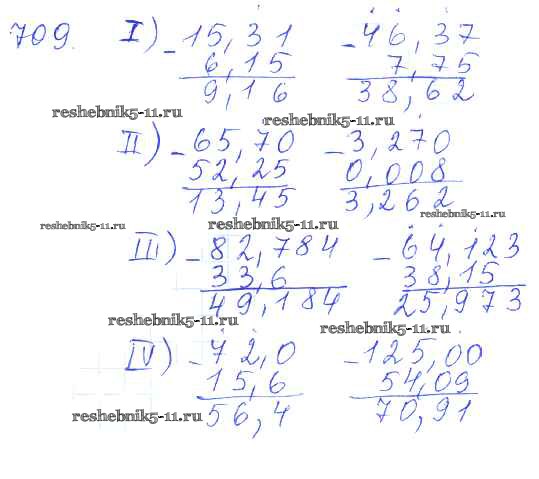 709. I) - 15,31 - 46,37
6,15 7,75
9,16 38,62
reshebnik5-11.ru reshebnik5-11.ru
II) - 65,70 - 3,270
52,25 0,008
13,45 3,262
reshebnik5-11.ru reshebnik5-11.ru reshebnik5-11.ru
III) - 82,784 - 64,123
33,6 38,15
49,184 25,973
reshebnik5-11.ru reshebnik5-11.ru
IV) - 72,0 - 125,00
15,6 54,09
56,4 70,91
reshebnik5-11.ru reshebnik5-11.ru